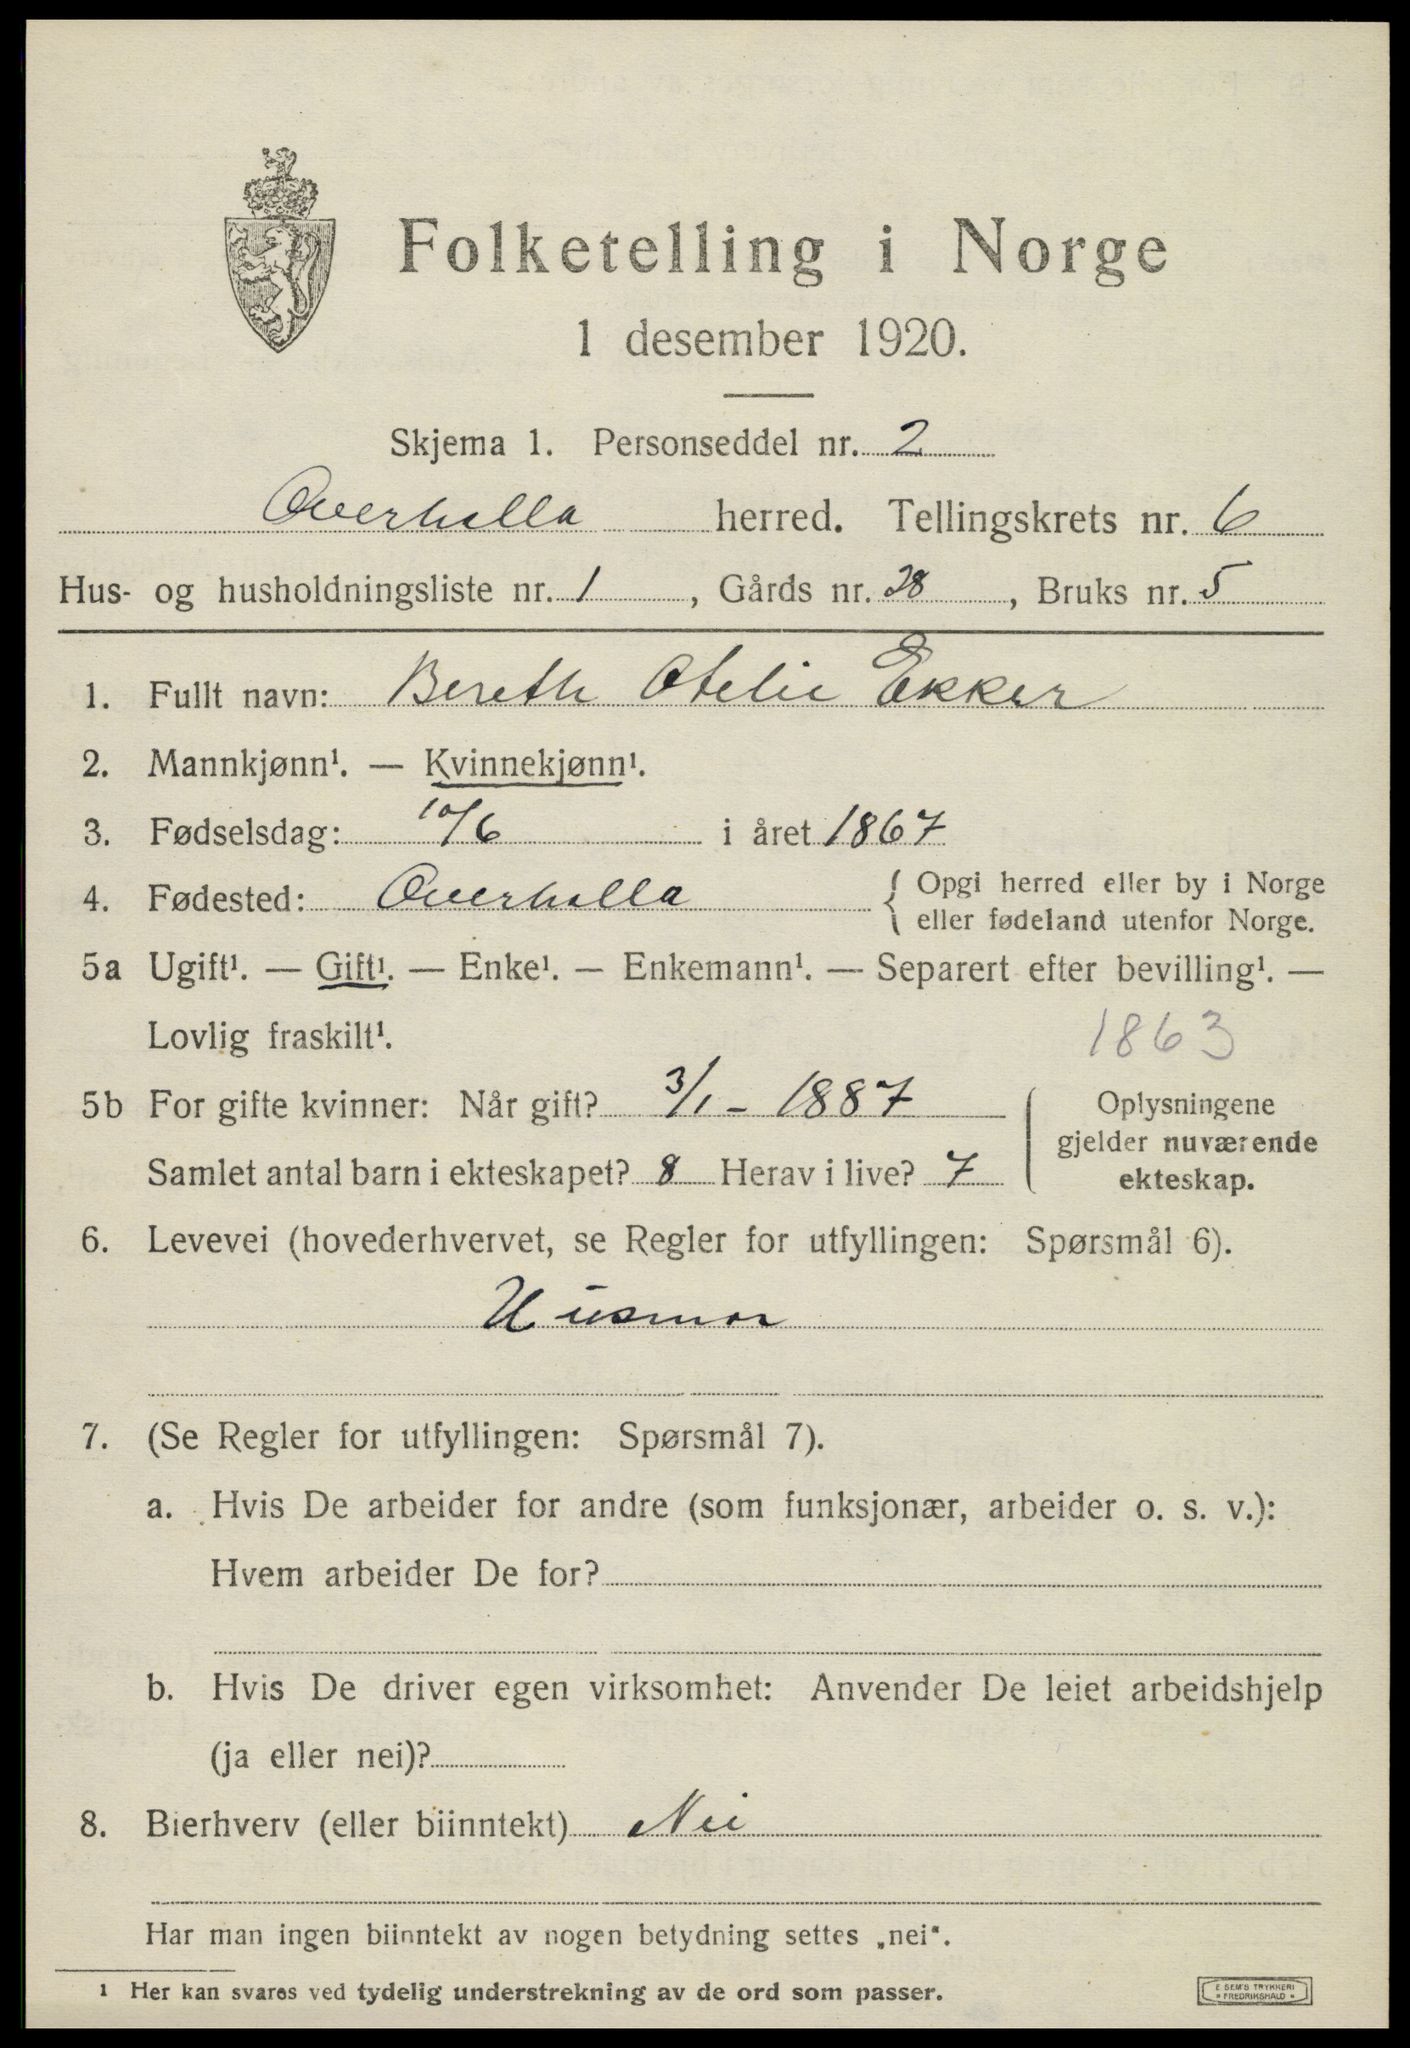 Folketelling i Norge
1 desember 1920.
Skjema 1. Personseddel nr. 2
Overhalla herred. Tellingskrets nr. 6
Hus- og husholdningsliste nr. 1, Gårds nr. 28, Bruks nr. 5
1. Fullt navn: Bereth Otelie Ekker
2. Mannkjønn¹. — Kvinnekjønn¹.
3. Fødselsdag: 10/6 i året 1867
4. Fødested: Overhalla { Opgi herred eller by i Norge
eller fødeland utenfor Norge.
5a Ugift¹. — Gift¹. — Enke¹. — Enkemann¹. — Separert efter bevilling¹. —
Lovlig fraskilt¹.
1863
5b For gifte kvinner: Når gift? 3/1 - 1887
Samlet antal barn i ekteskapet? 8 Herav i live? 7
Oplysningene
gjelder nuværende
ekteskap.
6. Levevei (hovederhvervet, se Regler for utfyllingen: Spørsmål 6).
Husmor
7. (Se Regler for utfyllingen: Spørsmål 7).
a. Hvis De arbeider for andre (som funksjonær, arbeider o. s. v.):
Hvem arbeider De for?
b. Hvis De driver egen virksomhet: Anvender De leiet arbeidshjelp
(ja eller nei)?
8. Bierhverv (eller biinntekt) Nei
Har man ingen biinntekt av nogen betydning settes „nei“.
1 Her kan svares ved tydelig understrekning av de ord som passer.
E SEM'S TRYKKERI
FREDRIKSHALD